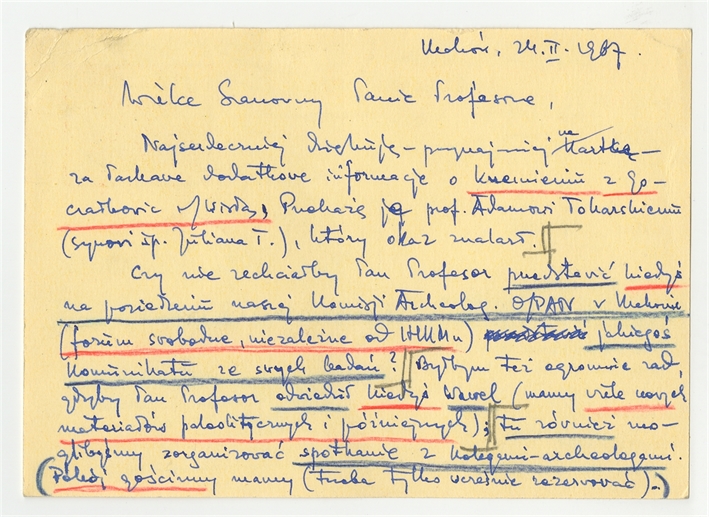 Kraków, 24.II.1987.
Wielce Szanowny Panie Profesorze,
Najserdeczniej dziękuję – przynajmniej na kartkę –
za łaskawe dodatkowe informacje o krzemieniu z Go-
czałkowic n/Wisłą, Przekażę ją prof. Adamowi Tokarskiemu
(synowi śp. Juliana T.), który okaz znalazł.
Czy nie zechciałby Pan Profesor przedstawić kiedyś
na posiedzeniu naszej Komisji Archeolog. O/PAN w Krakowie
(forum swobodne, niezależne od) jakiegoś
komunikatu ze swych badań? Byłbym też ogromnie rad,
gdyby Pan Profesor odwiedził kiedyś Wawel (mamy wiele nowych
materiałów paleolitycznych i późniejszych); Tu również mo-
glibyśmy zorganizować spotkanie z kolegami-archeologami.
(Pokój gościnny mamy (trzeba tylko wcześnie rezerwować).)